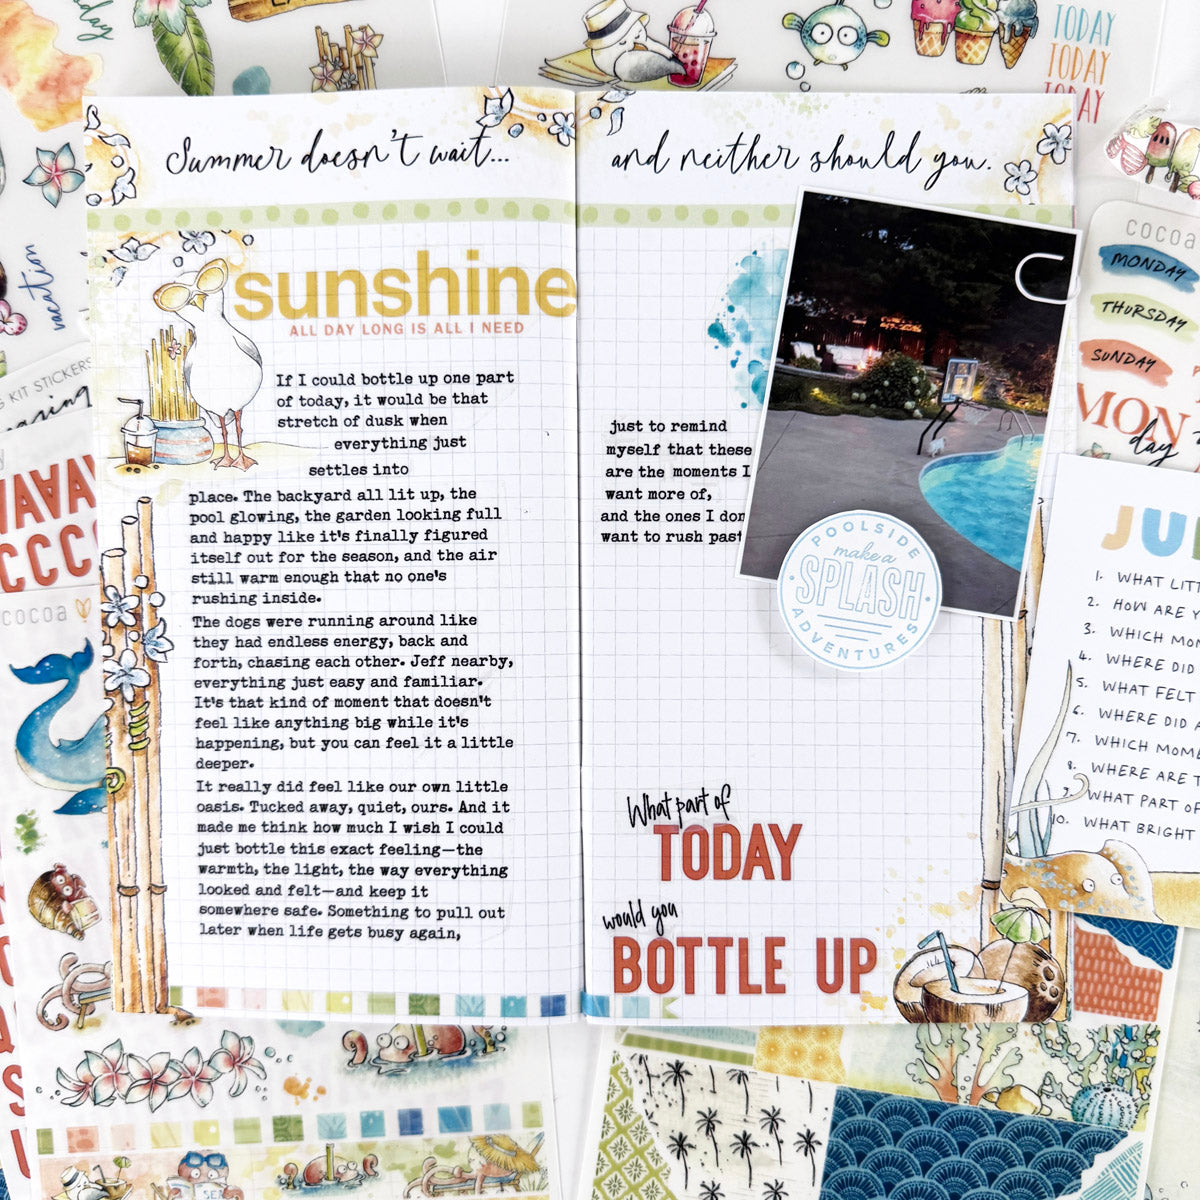 day
TODAY
TODAY
TODAY
vacation
KIT STICKERS
cocoa
cocoa
MONDAY
THURSDAY
SUNDAY
MON
day
Summer doesn't wait...
and neither should you.
sunshine
ALL DAY LONG IS ALL I NEED
If I could bottle up one part
of today, it would be that
stretch of dusk when
everything just
settles into
place. The backyard all lit up, the
pool glowing, the garden looking full
and happy like it's finally figured
itself out for the season, and the air
still warm enough that no one's
rushing inside.
The dogs were running around like
they had endless energy, back and
forth, chasing each other. Jeff nearby,
everything just easy and familiar.
It's that kind of moment that doesn't
feel like anything big while it's
happening, but you can feel it a little
deeper.
It really did feel like our own little
oasis. Tucked away, quiet, ours. And it
made me think how much I wish I could
just bottle this exact feeling—the
warmth, the light, the way everything
looked and felt—and keep it
somewhere safe. Something to pull out
later when life gets busy again,
just to remind
myself that these
are the moments I
want more of,
and the ones I don
want to rush past
POOLSIDE
make a
SPLASH
ADVENTURES
What part of
TODAY
would you
BOTTLE UP
JU
1. WHAT
2. HOW ARE
3. WHICH
4. WHERE DID
5. WHAT FELT
6. WHERE DID
7. WHICH
8. WHERE ARE
9. WHAT PART OF
10. WHAT BRIGHT